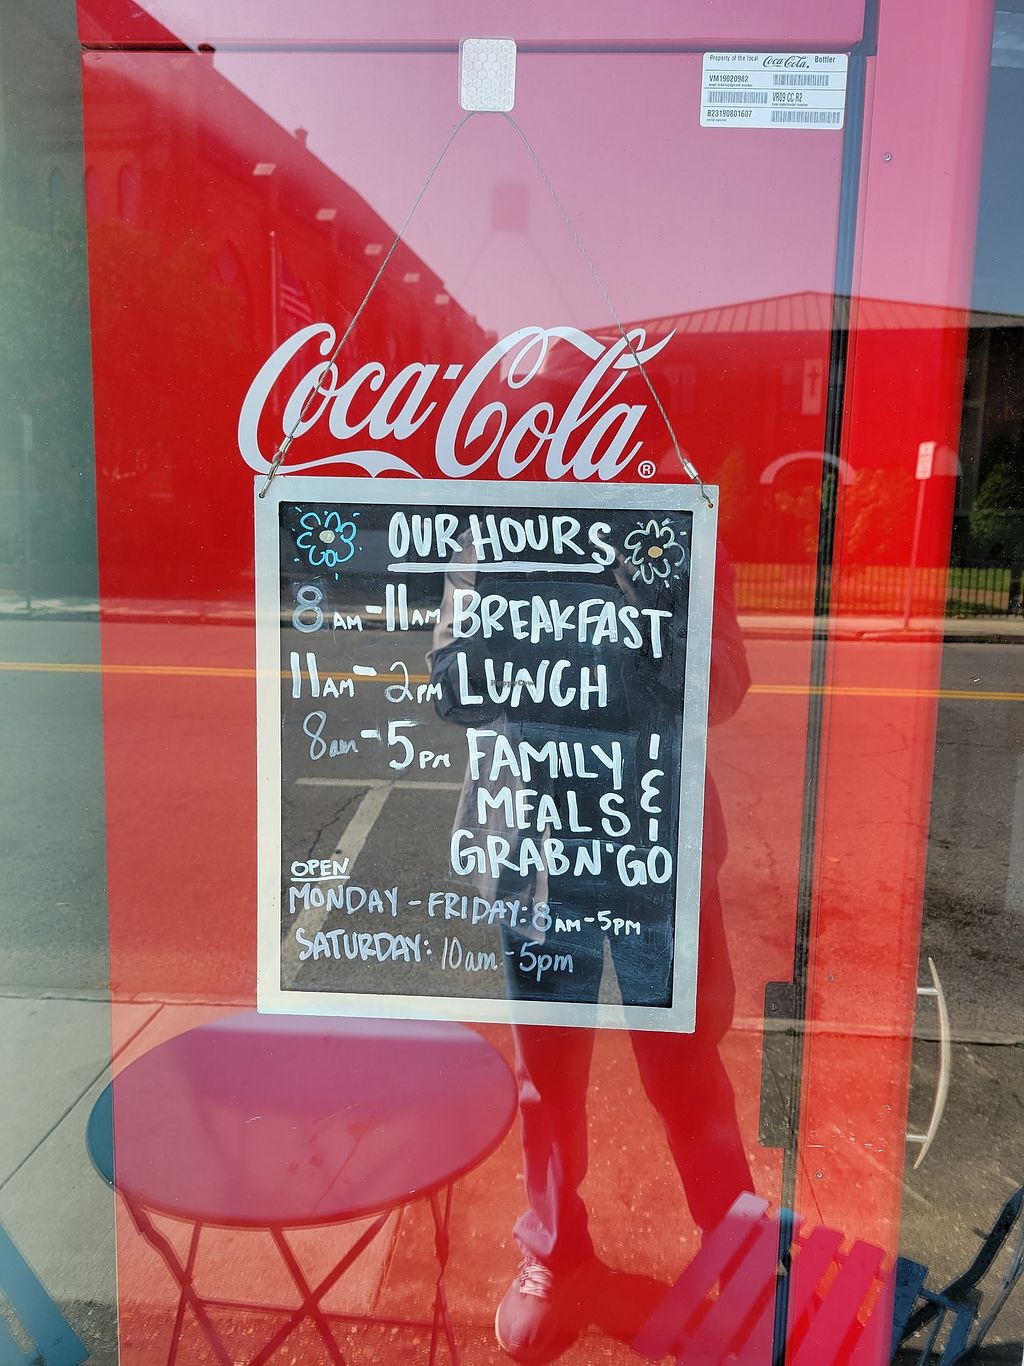 Property of the local Coca-Cola Bottler
VM19020982
VR09 CC R2
B23190801607
Coca-Cola®
OUR HOURS
8AM-11AM BREAKFAST
11AM-2PM LUNCH
8am-5PM FAMILY
MEALS &
GRABN'GO
OPEN
MONDAY-FRIDAY: 8AM-5PM
SATURDAY: 10am-5pm
HappyCow